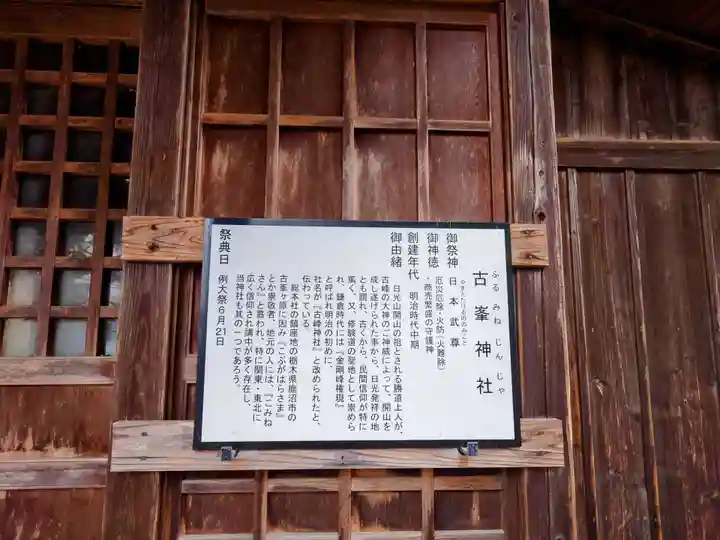 ふるみねじんじゃ
古峯神社
御祭神 日本武尊
やまとたけるのみこと
御神徳 厄災厄除・火防(火難除)
・商売繁盛の守護神
創建年代 明治時代中期
御由緒
日光山開山の祖とされる勝道上人が、
古峰の大神のご神威によって、開山を
成し遂げられた事から、日光発祥の地
とも謂れ、古くから、民間信仰が特に
篤く、又、修験道の聖地として崇めら
れ、鎌倉時代には『金剛峰権現』
と呼ばれ明治の初めに、
社名が『古峰神社』と改められたと、
伝わっている。
総本社の鎮座地の栃木県鹿沼市の
古峯ヶ原に因み『こぶがはらさま』
とか崇敬者、地元の人には、『こみね
さん』と慕われ、特に関東・東北に
広く信仰され講中が多く存在し、
当神社も其の一つであろう。
祭典日 例大祭6月21日